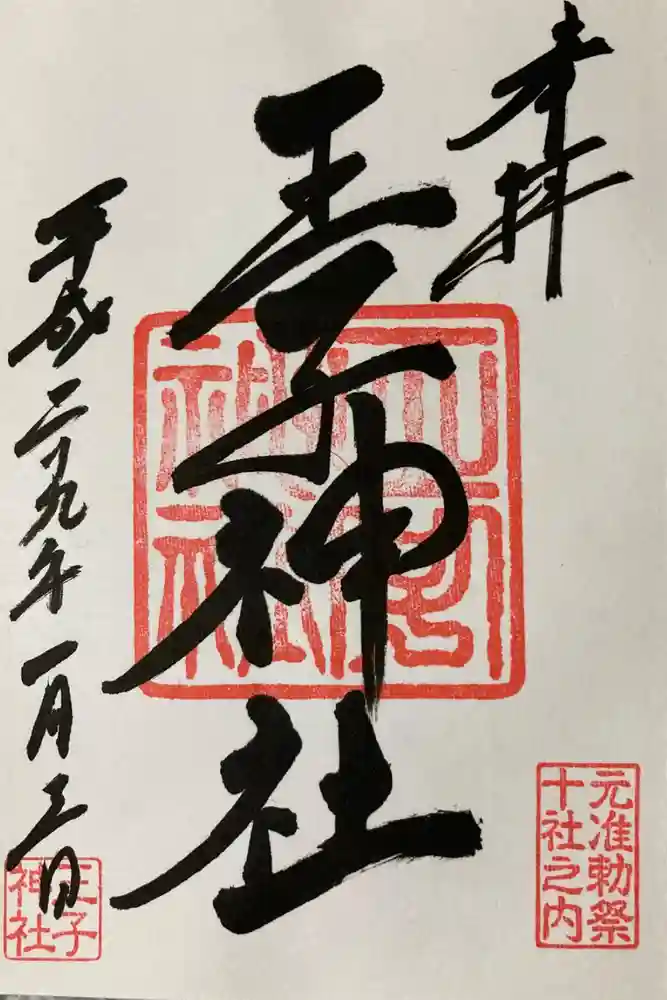 奉拝
王子神社
平成二十九年一月三日
元准勅祭
十社之内
王子
神社